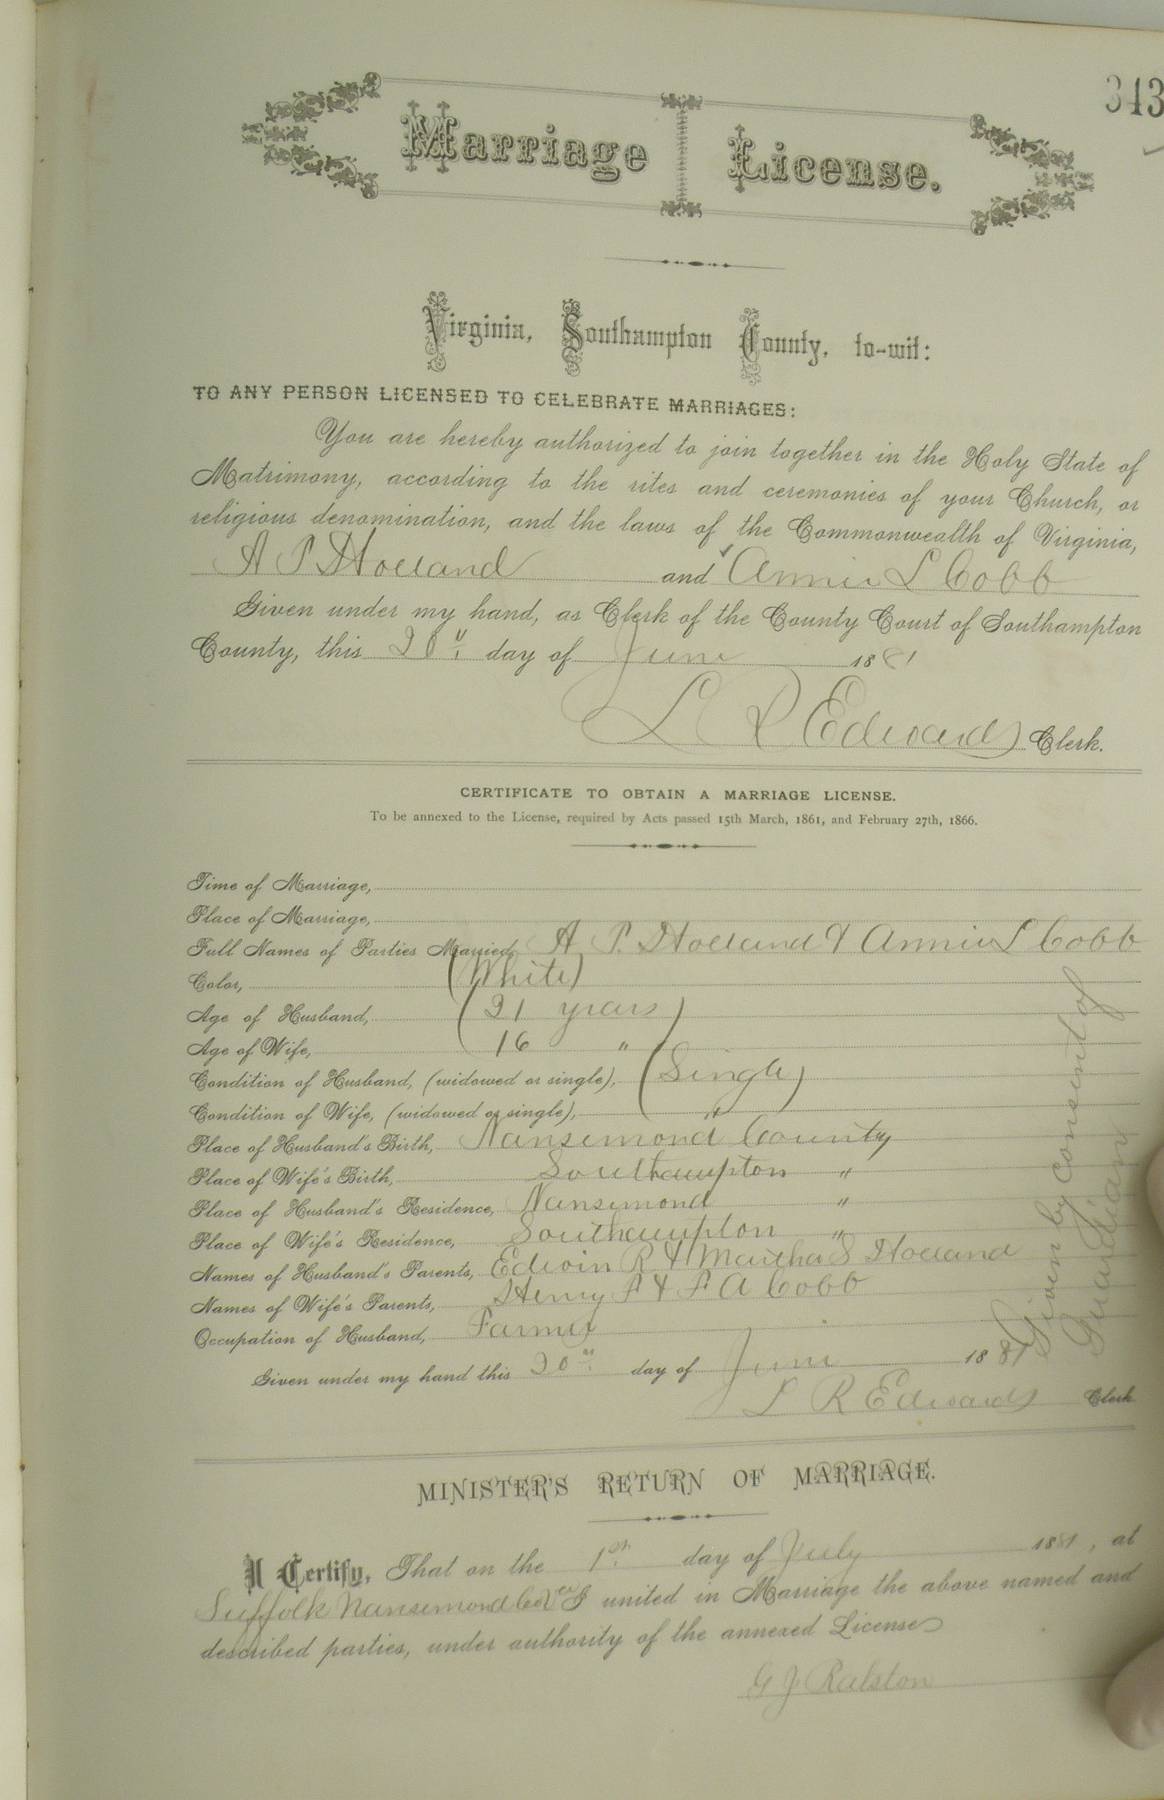 343
Marriage License.
Virginia, Southampton County, to-wit:
TO ANY PERSON LICENSED TO CELEBRATE MARRIAGES:
You are hereby authorized to join together in the Holy State of
Matrimony, according to the rites and ceremonies of your Church, or
religious denomination, and the laws of the Commonwealth of Virginia,
A P Holland and Annie L Cobb
Given under my hand, as Clerk of the County Court of Southampton
County, this 20" day of June 1881
L R Edwards Clerk.
CERTIFICATE TO OBTAIN A MARRIAGE LICENSE.
To be annexed to the License, required by Acts passed 15th March, 1861, and February 27th, 1866.
Time of Marriage,
Place of Marriage,
Full Names of Parties Married, A P. Holland & Annie L Cobb
Color, (White)
Age of Husband, (21 years)
Age of Wife, 16 "
Condition of Husband, (widowed or single), (Single)
Condition of Wife, (widowed or single), "
Place of Husband's Birth, Nansemond County
Place of Wife's Birth, Southampton "
Place of Husband's Residence, Nansemond "
Place of Wife's Residence, Southampton "
Names of Husband's Parents, Edwin R & Martha S Holland
Names of Wife's Parents, Henry F & F. A Cobb
Occupation of Husband, Farmer
Given under my hand this 20" day of June 1881
L R Edwards Clerk
Given by consent of
Guardian
MINISTER'S RETURN OF MARRIAGE.
I Certify, That on the 1st day of July 1881, at
Suffolk Nansemond Co Va I united in Marriage the above named and
described parties, under authority of the annexed License
G J Ralston